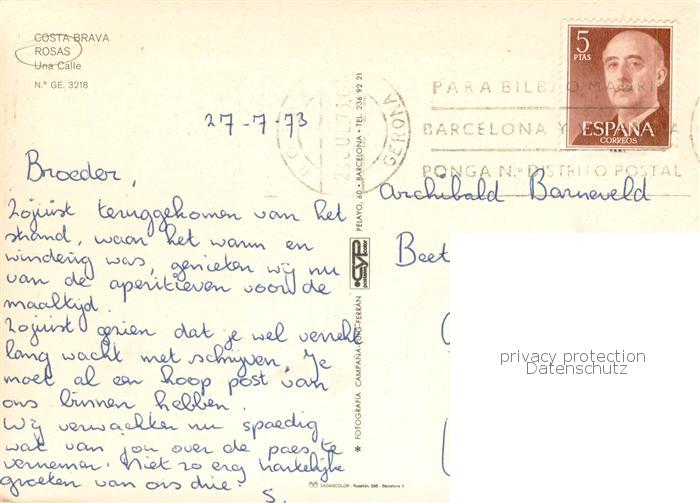 COSTA BRAVA
ROSAS
Una Calle
N.º GE. 3218
27-7-73
Broeder,
Zojuist teruggekomen van het
strand, waar het warm en
winderig was, genieten wij nu
van de aperitieven voor de
maaltijd.
Zojuist gezien dat je wel verrekt
lang wacht met schrijven. Je
moet al een hoop post van
ons binnen hebben.
Wij verwachten nu spoedig
wat van jou over de paes te
vernemen. Niet zo erg hartelijke
groeten van ons drie.
S.
PELAYO, 60 • BARCELONA • TEL. 236 92 21
CYP
* FOTOGRAFIA CAMPAÑA-PUIG-FERRÁN
SADAGCOLOR - Rosellón, 298 - Barcelona
GERONA
PARA BILBAO MADRID
BARCELONA Y
PONGA N.º DISTRITO POSTAL
5
PTAS
ESPAÑA
CORREOS
Archibald Barneveld
Beet
privacy protection
Datenschutz